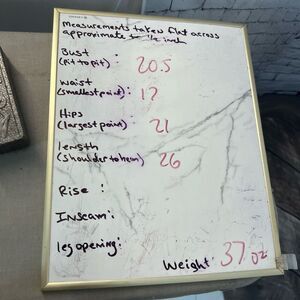 Measurements taken flat across
approximate to 1/2 inch
Bust :
(Pit to pit) 20.5
Waist
(smallest point): 17
Hips
(largest point): 21
length
(shoulder to hem) 26
Rise :
Inseam:
leg opening:
Weight: 37 oz